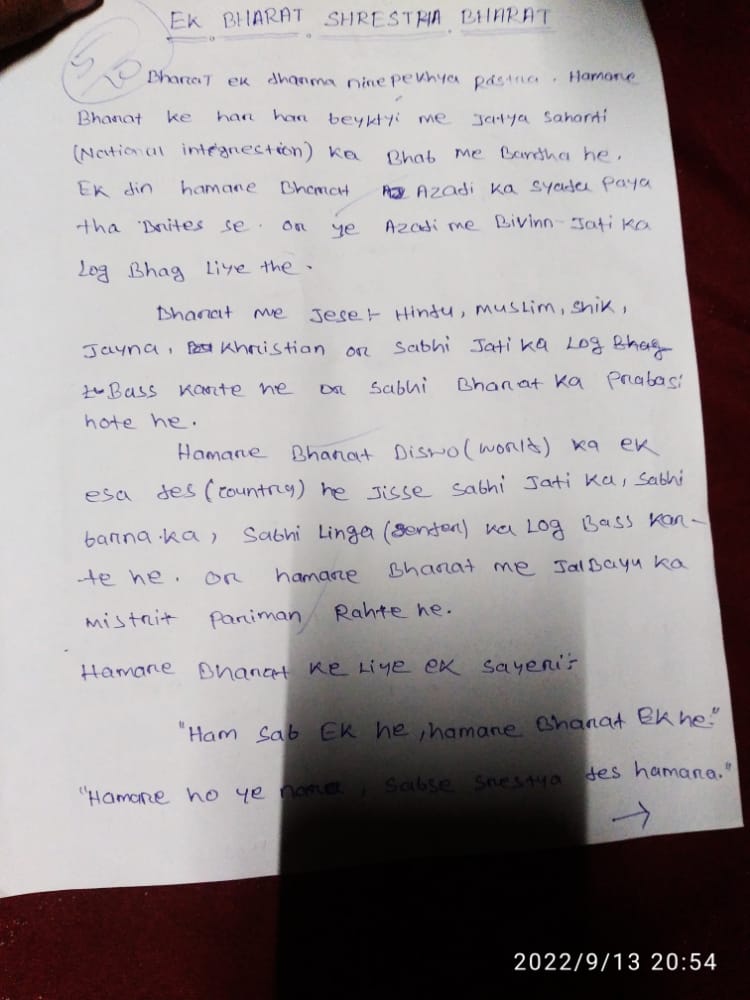 EK BHARAT SHRESTRIA BHARAT
5/20
Bharat ek dharma ninepekhya rastria. Hamare
Bharat ke har har beyktyi me Jatya Sahanti
(National integnestion) ka Bhab me Bandha he.
Ek din hamare Bharat Azadi ka syadu Paya
tha Brites se. or ye Azadi me Bivinn Jati ka
Log Bhag Liye the.
Bharat me Jese:- Hindu, muslim, shik,
Jayna, Khristian or sabhi Jati ka Log Bhag
Bass karte he or sabhi Bharat ka Prabasi
hote he.
Hamare Bharat Diswo (world) ka ek
esa des (country) he Jisse sabhi Jati ka, sabhi
barna.ka, sabhi Linga (Genden) ka Log Bass kar-
te he. or hamare Bharat me JalBayu ka
mistrit Pariman Rahte he.
Hamare Bharat ke Liye ek sayeri:-
"Ham sab Ek he, hamare Bharat Ek he."
"Hamare ho ye nara, sabse srestya des hamara."
→
2022/9/13 20:54